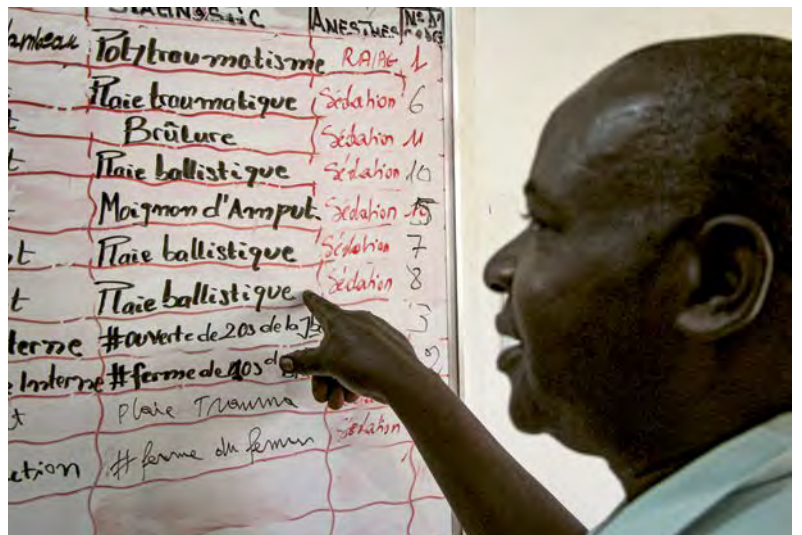 DIAGNOSTIC ANESTHES N° D'
Polytraumatisme RA/AG 1
Plaie traumatique Sédation 6
Brûlure Sédation 11
Plaie ballistique Sédation 10
Moignon d'Amput. Sédation
Plaie ballistique Sédation 7
Plaie ballistique Sédation 8
terne #ouverte de 2 os de la 3
Interne #ferme de 2
Plaie Trauma
ction #ferme du femur Sédation